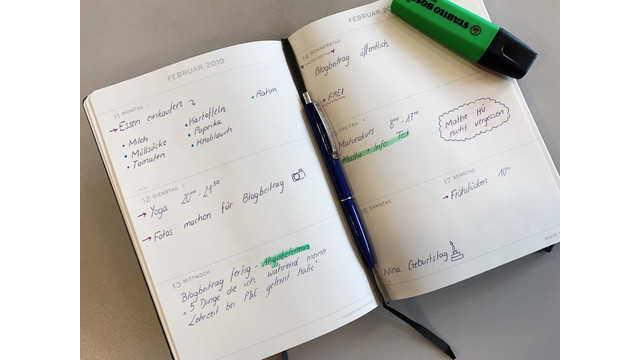 FEBRUAR 2019
11 MONTAG
→ Essen einkaufen
• Milch
• Müllsäcke
• Tomaten
• Kartoffeln
• Paprika
• Knoblauch
• Rahm
12 DIENSTAG
→ Yoga 20⁰⁰ - 21³⁰
→ Fotos machen für Blogbeitrag
13 MITTWOCH
Blogbeitrag fertig - Abgabetermin
"5 Dinge die ich während meiner
Lehrzeit bei PwC gelernt habe"
FEBRUAR
14 DONNERSTAG
♥ VALENTINSTAG ♥
Blogbeitrag öffentlich
→ FREI
FREITAG
Maturakurs 8⁰⁰ - 17⁰⁰
Mathe + Info Test
Mathe HÜ
nicht vergessen
SAMSTAG
Nina Geburtstag
17 SONNTAG
→ Frühstücken 10⁰⁰
STABILO BOSS